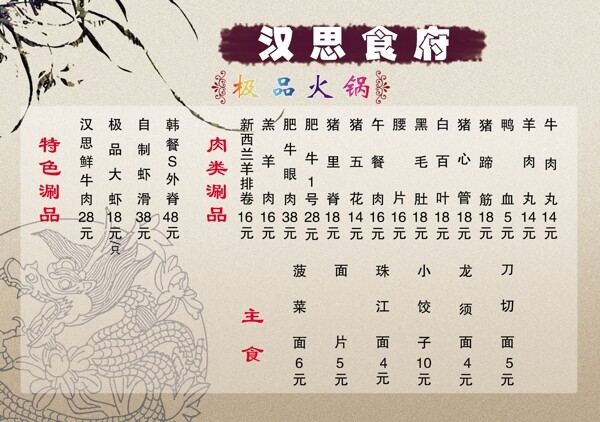 汉思食府
极品火锅
特色涮品
汉思鲜牛肉28元
极品大虾18元/只
自制虾滑38元
韩餐S外脊48元
肉类涮品
新西兰羊排卷16元
羔羊肉16元
肥牛眼肉38元
肥牛1号28元
猪里脊18元
猪五花14元
午餐肉16元
腰片16元
黑毛肚18元
白百叶18元
猪心管18元
猪蹄筋18元
鸭血5元
羊肉丸14元
牛肉丸14元
主食
菠菜面6元
面片5元
珠江面4元
小饺子10元
龙须面4元
刀切面5元